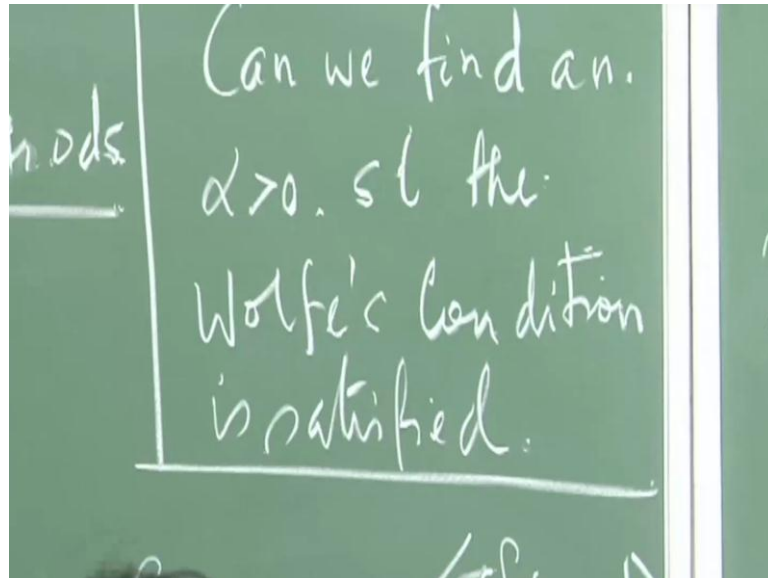 Can we find an.
α>0. st the
Wolfe's Condition
is satisfied.